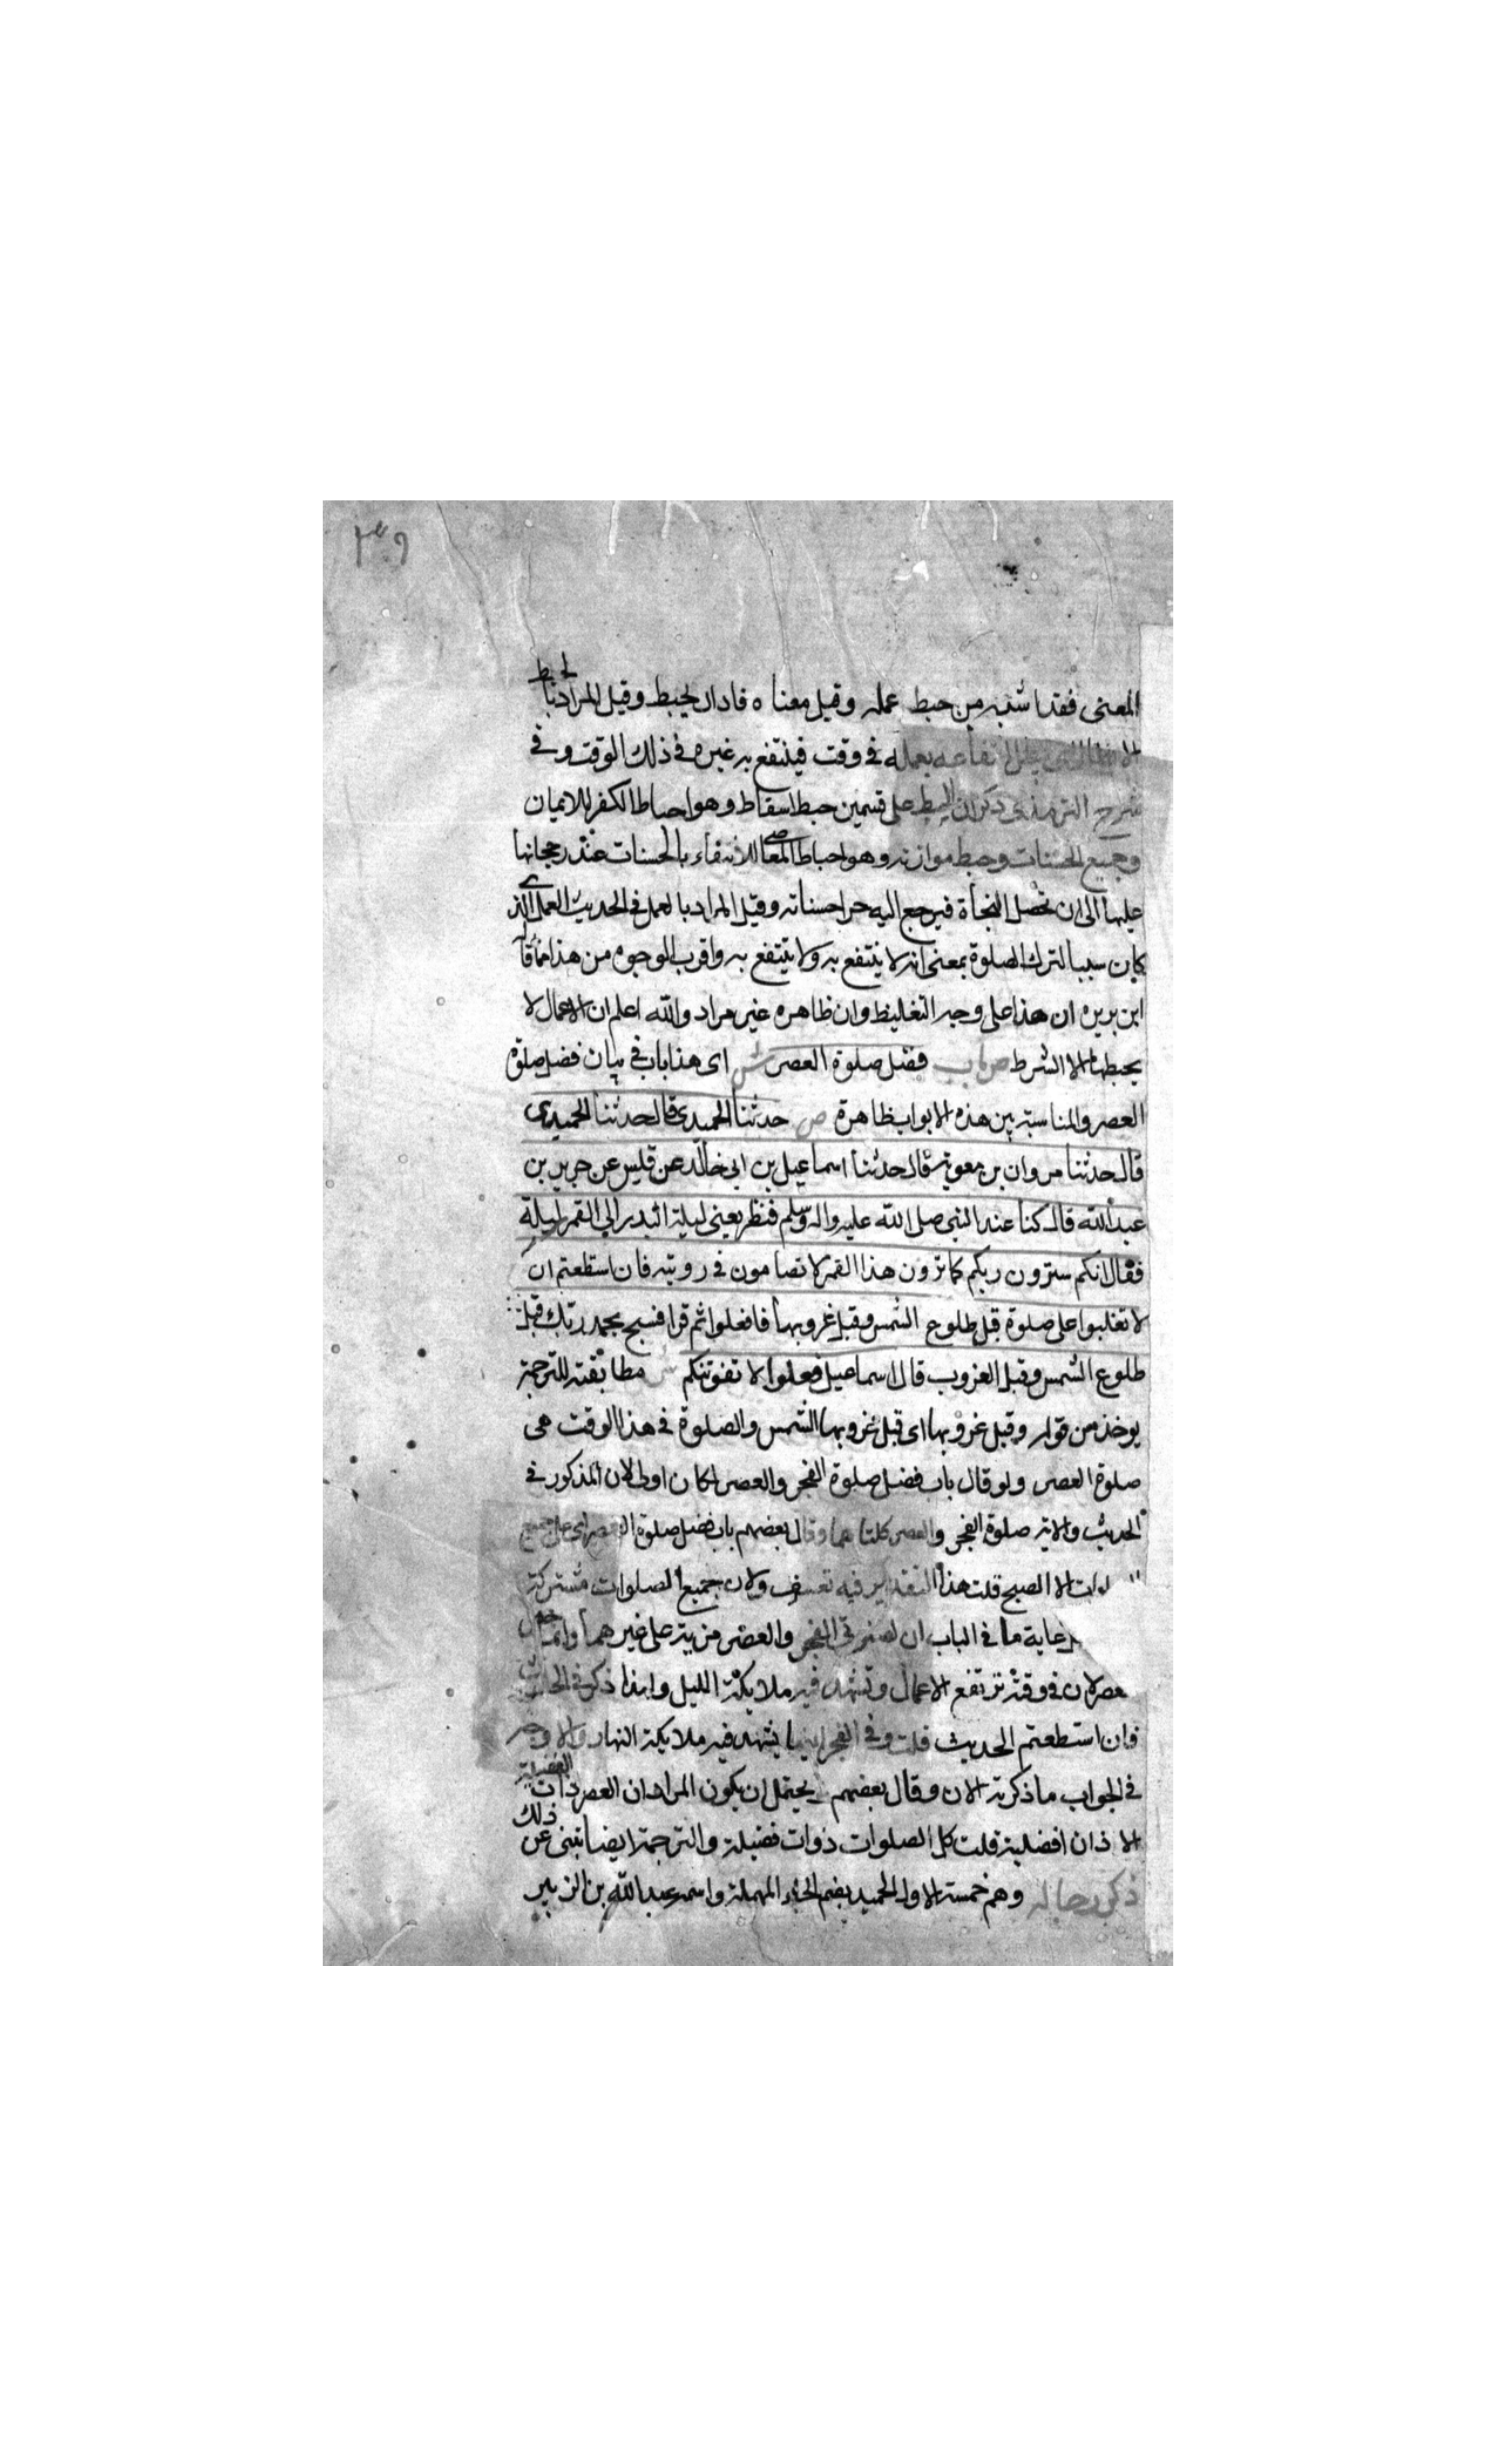 ٣٠٩
المعنى فقد اشبه من حبط عمله وقيل معناه فاداد يحبط وقيل المراد بالحبط
الابطال اى يبطل انتفاعه بعمله فى وقت فينتفع به غيره فى ذلك الوقت وفى
شرح الترمذى ذكر ان الحبط على قسمين حبط اسقاط وهو احباط الكفر للايمان
وجميع الحسنات وحبط موازنة وهو احباط المعاصى للانتفاء بالحسنات عند رجحانها
عليها الى ان تحصل النجاة فيرجع اليه جزا حسناته وقيل المراد بالعمل فى الحديث العمل الذى
كان سببا لترك الصلوة بمعنى انه لا ينتفع به ولا يتيتفع به واقرب الوجوه من هذا ما قاله
ابن بريره ان هذا على وجه التغليظ وان ظاهره غير مراد والله اعلم ان الاعمال لا
يحبطها الا الشرط ص باب فضل صلوة العصر ش اى هذا باب فى بيان فضل صلوة
العصر والمناسبة بين هذه الابواب ظاهرة ص حدثنا الحميدى قال حدثنا الحميدى
قال حدثنا مروان بن معوية قال حدثنا اسماعيل بن ابى خالد عن قليس عن جرير بن
عبد الله قال كنا عند النبى صلى الله عليه واله وسلم فنظر يعنى ليلة البدر الى القمر ليلة
فقال انكم سترون ربكم كما ترون هذا القمر لا تضامون فى رويته فان استطعتم ان
لا تغلبوا على صلوة قبل طلوع الشمس وقبل غروبها فافعلوا ثم قرا فسبح بحمد ربك قبل
طلوع الشمس وقبل الغروب قال اسماعيل فعلوا لا تفوتنكم ش مطابقته للترجمة
يوخذ من قوله وقبل غروبها اى قبل غروبها الشمس والصلوة فى هذا الوقت هى
صلوة العصر ولو قال باب فضل صلوة الفجر والعصر لكان اولى لان المذكور فى
الحديث والاية صلوة الفجر والعصر كلتاهما وقال بعضهم باب فضل صلوة العصر اى على جميع
لوات الا الصبح قلت هذا التقدير فيه تعسف ولان جميع الصلوات مشتركة
غاية ما فى الباب ان لصلوتى الفجر والعصر مزية على غيرهما وانما خص
عصر لان فى وقته ترتفع الاعمال وتشهد فيه ملايكة الليل ولهذا ذكر فى الحديث
فان استطعتم الحديث قلت وفى الفجر ايضا يشهد فيه ملايكة النهار والاوجه
فى الجواب ما ذكرته الان وقال بعضهم يحتمل ان يكون المراد ان العصر ذات الفضيلة
الا ذان افضلية قلت كل الصلوات ذوات فضيلة والترجمة ايضا تنبى عن ذلك
ذكر رجاله وهم خمسة الاول الحميد بضم الحاء المهملة واسمه عبد الله بن الزبير